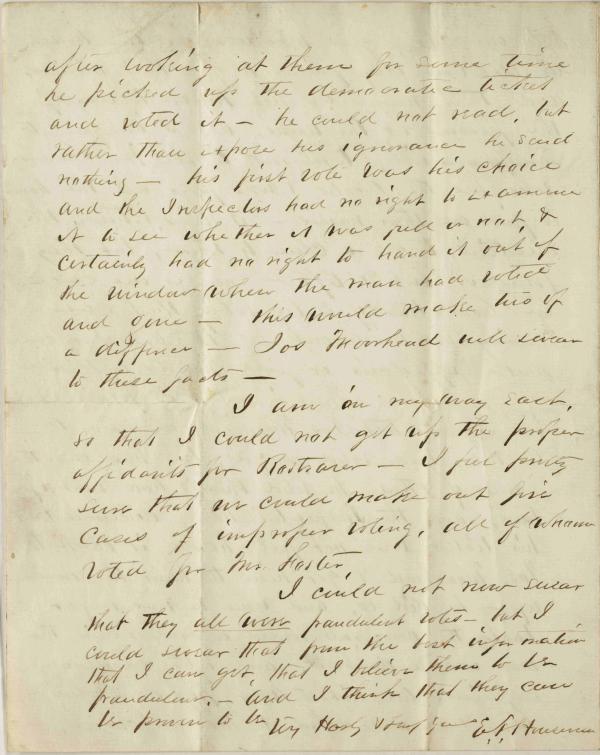 after looking at them for some time
he picked up the democratic ticket
and voted it – he could not read, but
rather than expose his ignorance he said
nothing – his first vote was his choice
and the Inspectors had no right to examine
it to see whether it was full or not, &
certainly had no right to hand it out of
the window when the man had voted
and gone – this would make two of
a difference – Jos Moorhead will swear
to these facts –
I am on my way East,
so that I could not get up the proper
affidavits for Rostraver – I feel pretty
sure that we could make out five
cases of improper voting, all of whom
voted for Mr. Foster
I could not now swear
that they all were fraudulent votes – but I
could swear that from the best information
that I can get, that I believe them to be
fraudulent. – and I think that they can
be proven to be